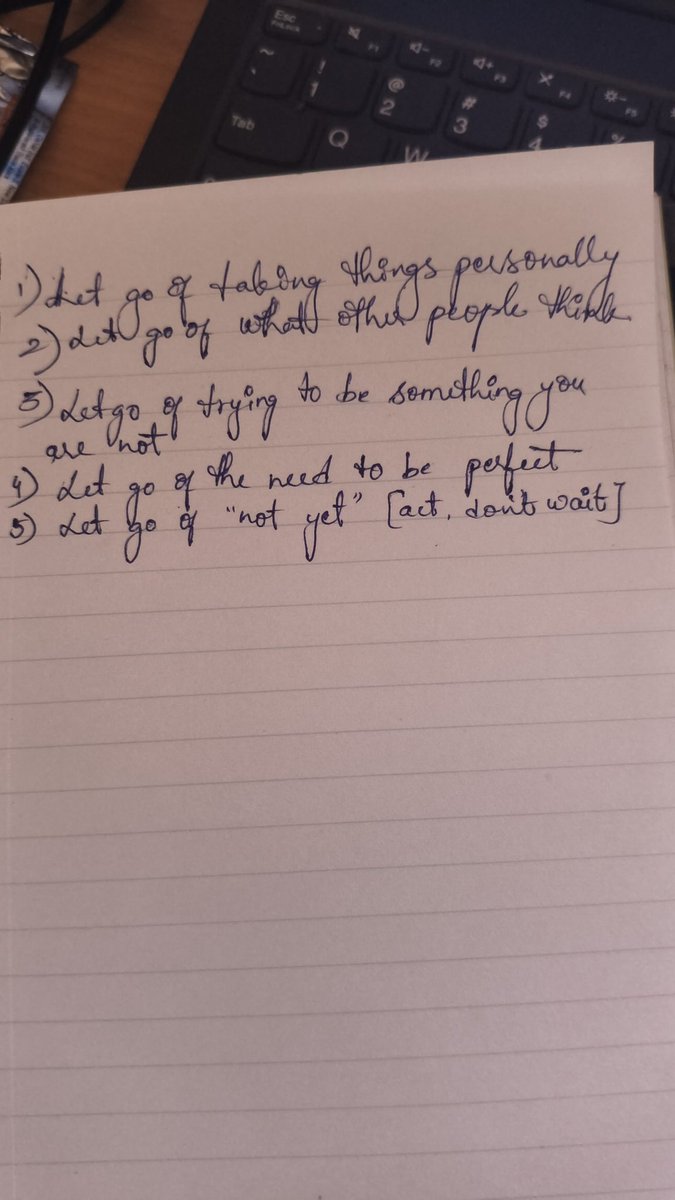 Esc
FnLock
F1
F2
F3
F4
F5
~
`
!
1
@
2
#
3
$
4
%
Tab
Q
W
1) Let go of taking things personally
2) Let go of what other people think
3) Let go of trying to be something you
are not
4) Let go of the need to be perfect
5) Let go of "not yet" [act, don't wait]